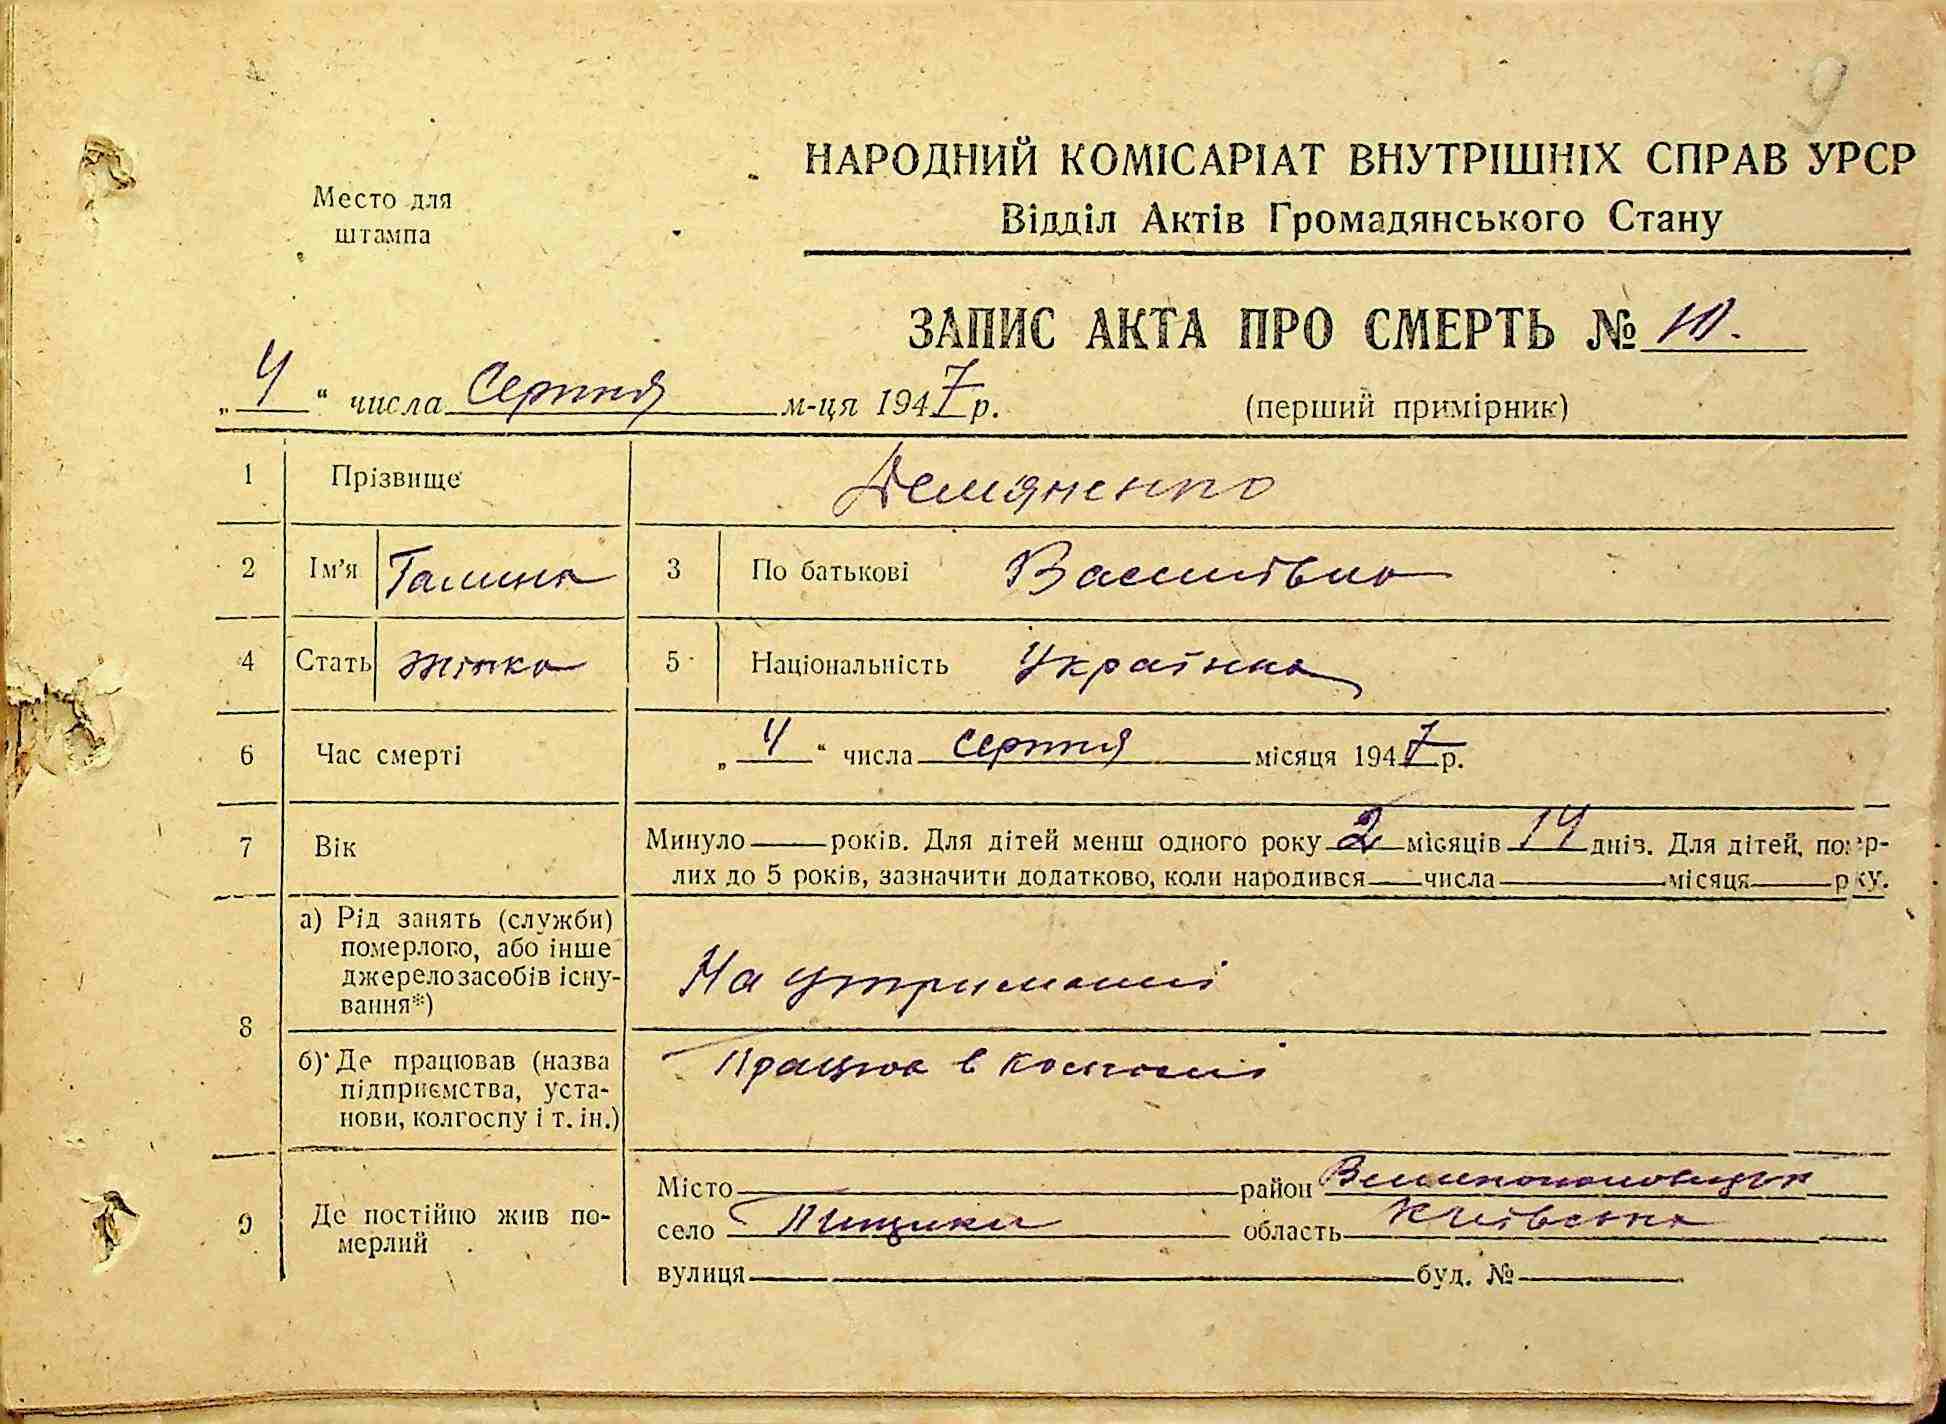 9
НАРОДНИЙ КОМІСАРІАТ ВНУТРІШНІХ СПРАВ УРСР
Место для штампа
Відділ Актів Громадянського Стану
ЗАПИС АКТА ПРО СМЕРТЬ №
„4“ числа Серпня м-ця 1947 р. (перший примірник)
1 Прізвище Демяненко
2 Ім'я Галина 3 По батькові Василівна
4 Стать жінка 5 Національність Українка
6 Час смерті „4“ числа серпня місяця 1947 р.
7 Вік Минуло — років. Для дітей менш одного року 2 місяців 14 днів. Для дітей, помер-
лих до 5 років, зазначити додатково, коли народився — числа — місяця — року.
8 а) Рід занять (служби) померлого, або інше джерело засобів існу-вання*) На утриманні
б) Де працював (назва підприємства, уста-нови, колгоспу і т. ін.) Працює в
9 Де постійно жив по-мерлий Місто — район
село Пищики область Київська
вулиця — буд. № —